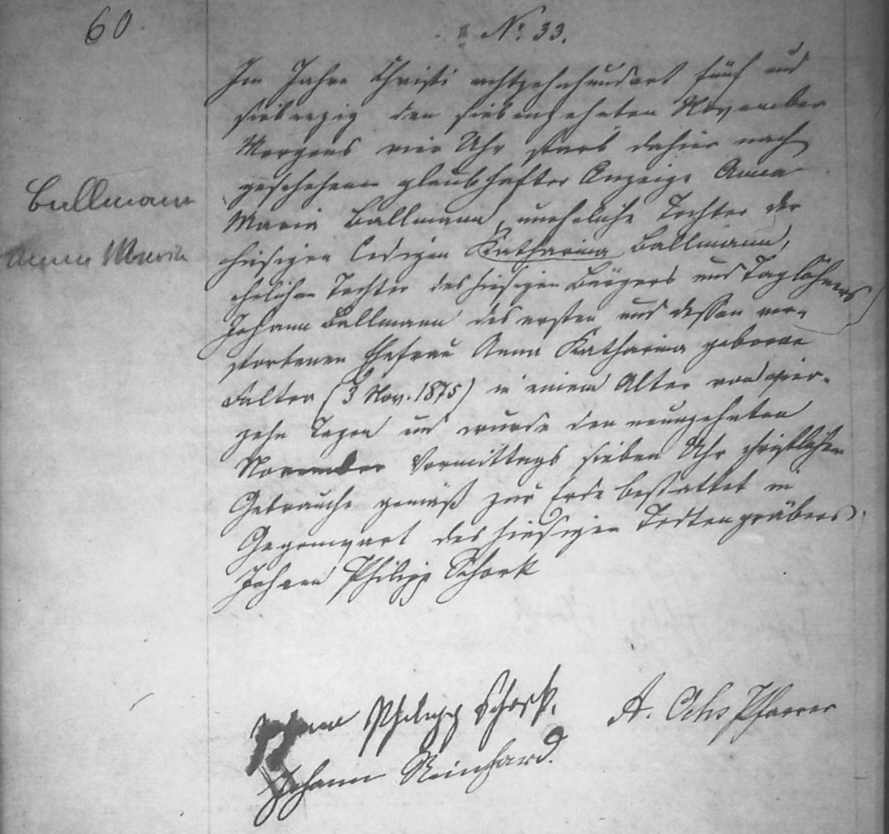 60.
No. 33.
Im Jahre Christi achtzehnhundert fünf und
siebenzig den siebenzehnten November
Morgens vier Uhr starb dahier nach
geschehener glaubhafter Anzeige Anna
Maria Ballmann, uneheliche Tochter der
hiesigen ledigen Katharina Ballmann,
ehelichen Tochter des hiesigen Bürgers und Taglöhners
Johann Ballmann des ersten und dessen ver-
storbenen Ehefrau Anna Katharina geborne
Falter (3 Nov. 1875) in einem Alter von vier-
zehn Tagen und wurde den neunzehnten
November Vormittags sieben Uhr christlichem
Gebrauche gemäß zur Erde bestattet in
Gegenwart des hiesigen Todtengräbers
Johann Philipp Schork
Ballmann
Anna Maria
Johann Philipp Schork.
A. Ochs Pfarrer
Johann Reinhard.